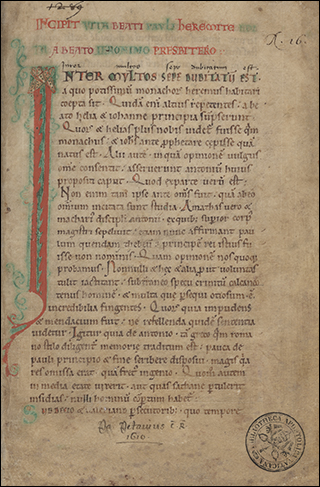 INCIPIT VITA BEATI PAVLI HEREMITE
TA A BEATO IERONIMO PRESBITERO
Inter multos sepe dubitatum est
INTER MVLTOS SEPE DUBITATŪ EST
A quo potissimū monachoꝝ heremus habitari
cœpta sit. Quidā enī altius repetentes. a be
ato helia & iohanne principia sūpserunt.
Quoꝝ & helias plus nobis videt᷑ fuisse qm̄
monachus. & iohs̄ ante ꝓphetare cepisse quā
natus est. Alii autē. in quā opinionē vulgus
om̄e consentit. asseverunt antoniū huius
ꝓpositi caput. Quod ex parte verū est.
Non enim tam ipse ante om̄s fuit. quā ab eo
omniū incitata sunt studia. Amathas vero &
machari᷒ discipli antonii. e quibꝫ suꝑior corp᷒
magistri sepeliuit. etiam nunc affirmant pau
lum quendam thebeū principē rei istius fu
isse non nominis. Quam opinionē nos quoqꝫ
probamus. Nonnulli & hec & alia prout voluntas
tulit iactitant. subterraneo specu crinitū calcaneo
tenus hominē. & multa que persequi otiosum ē.
incredibilia fingentes. Quoꝝ quia impudens
& mendacium fuit. ne refellenda quidē sententia
videtur. Igitur quia de antonio. tā greco qm̄ roma
no stilo diligent᷑ memorie traditum est. pauca de
pauli principio & fine scribere disposui. magis qa
res omissa erat. quā fret᷒ ingenio. Quom̄ autem
in media etate vixerit. aut quas sathane ꝑtulerit
insidias. nulli hominū cōꝑtum habet᷑.
Sub decio & valeriano ꝑsecutoribꝫ. quo tempore
Pa. Petavius
1610
BIBLIOTHECA APOSTOLICA VATICANA